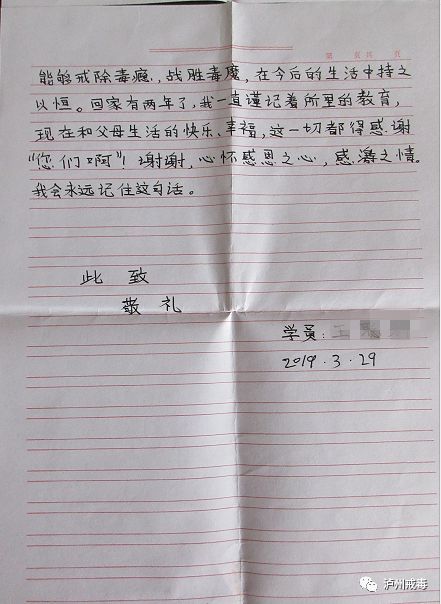 第 页 共 页
能够戒除毒瘾，战胜毒魔，在今后的生活中持之
以恒。回家有两年了，我一直谨记着所里的教育，
现在和父母生活的快乐、幸福，这一切都得感谢
“您们啊”！谢谢，心怀感恩之心，感激之情。
我会永远记住这句话。
此 致
敬 礼
学员：
2019.3.29
泸州戒毒